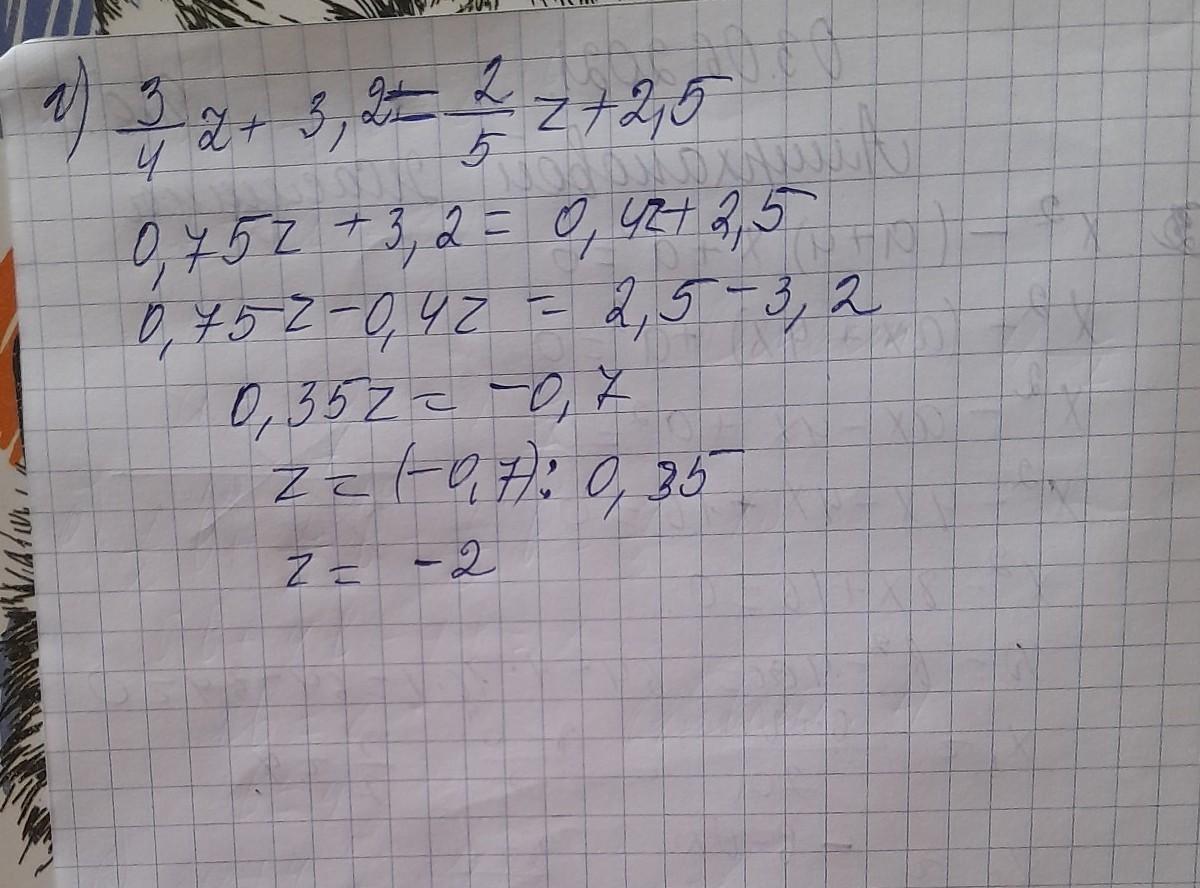 г) 3/4 z + 3,2 = 2/5 z + 2,5
0,75z + 3,2 = 0,4z + 2,5
0,75z - 0,4z = 2,5 - 3,2
0,35z = -0,7
z = (-0,7) : 0,35
z = -2